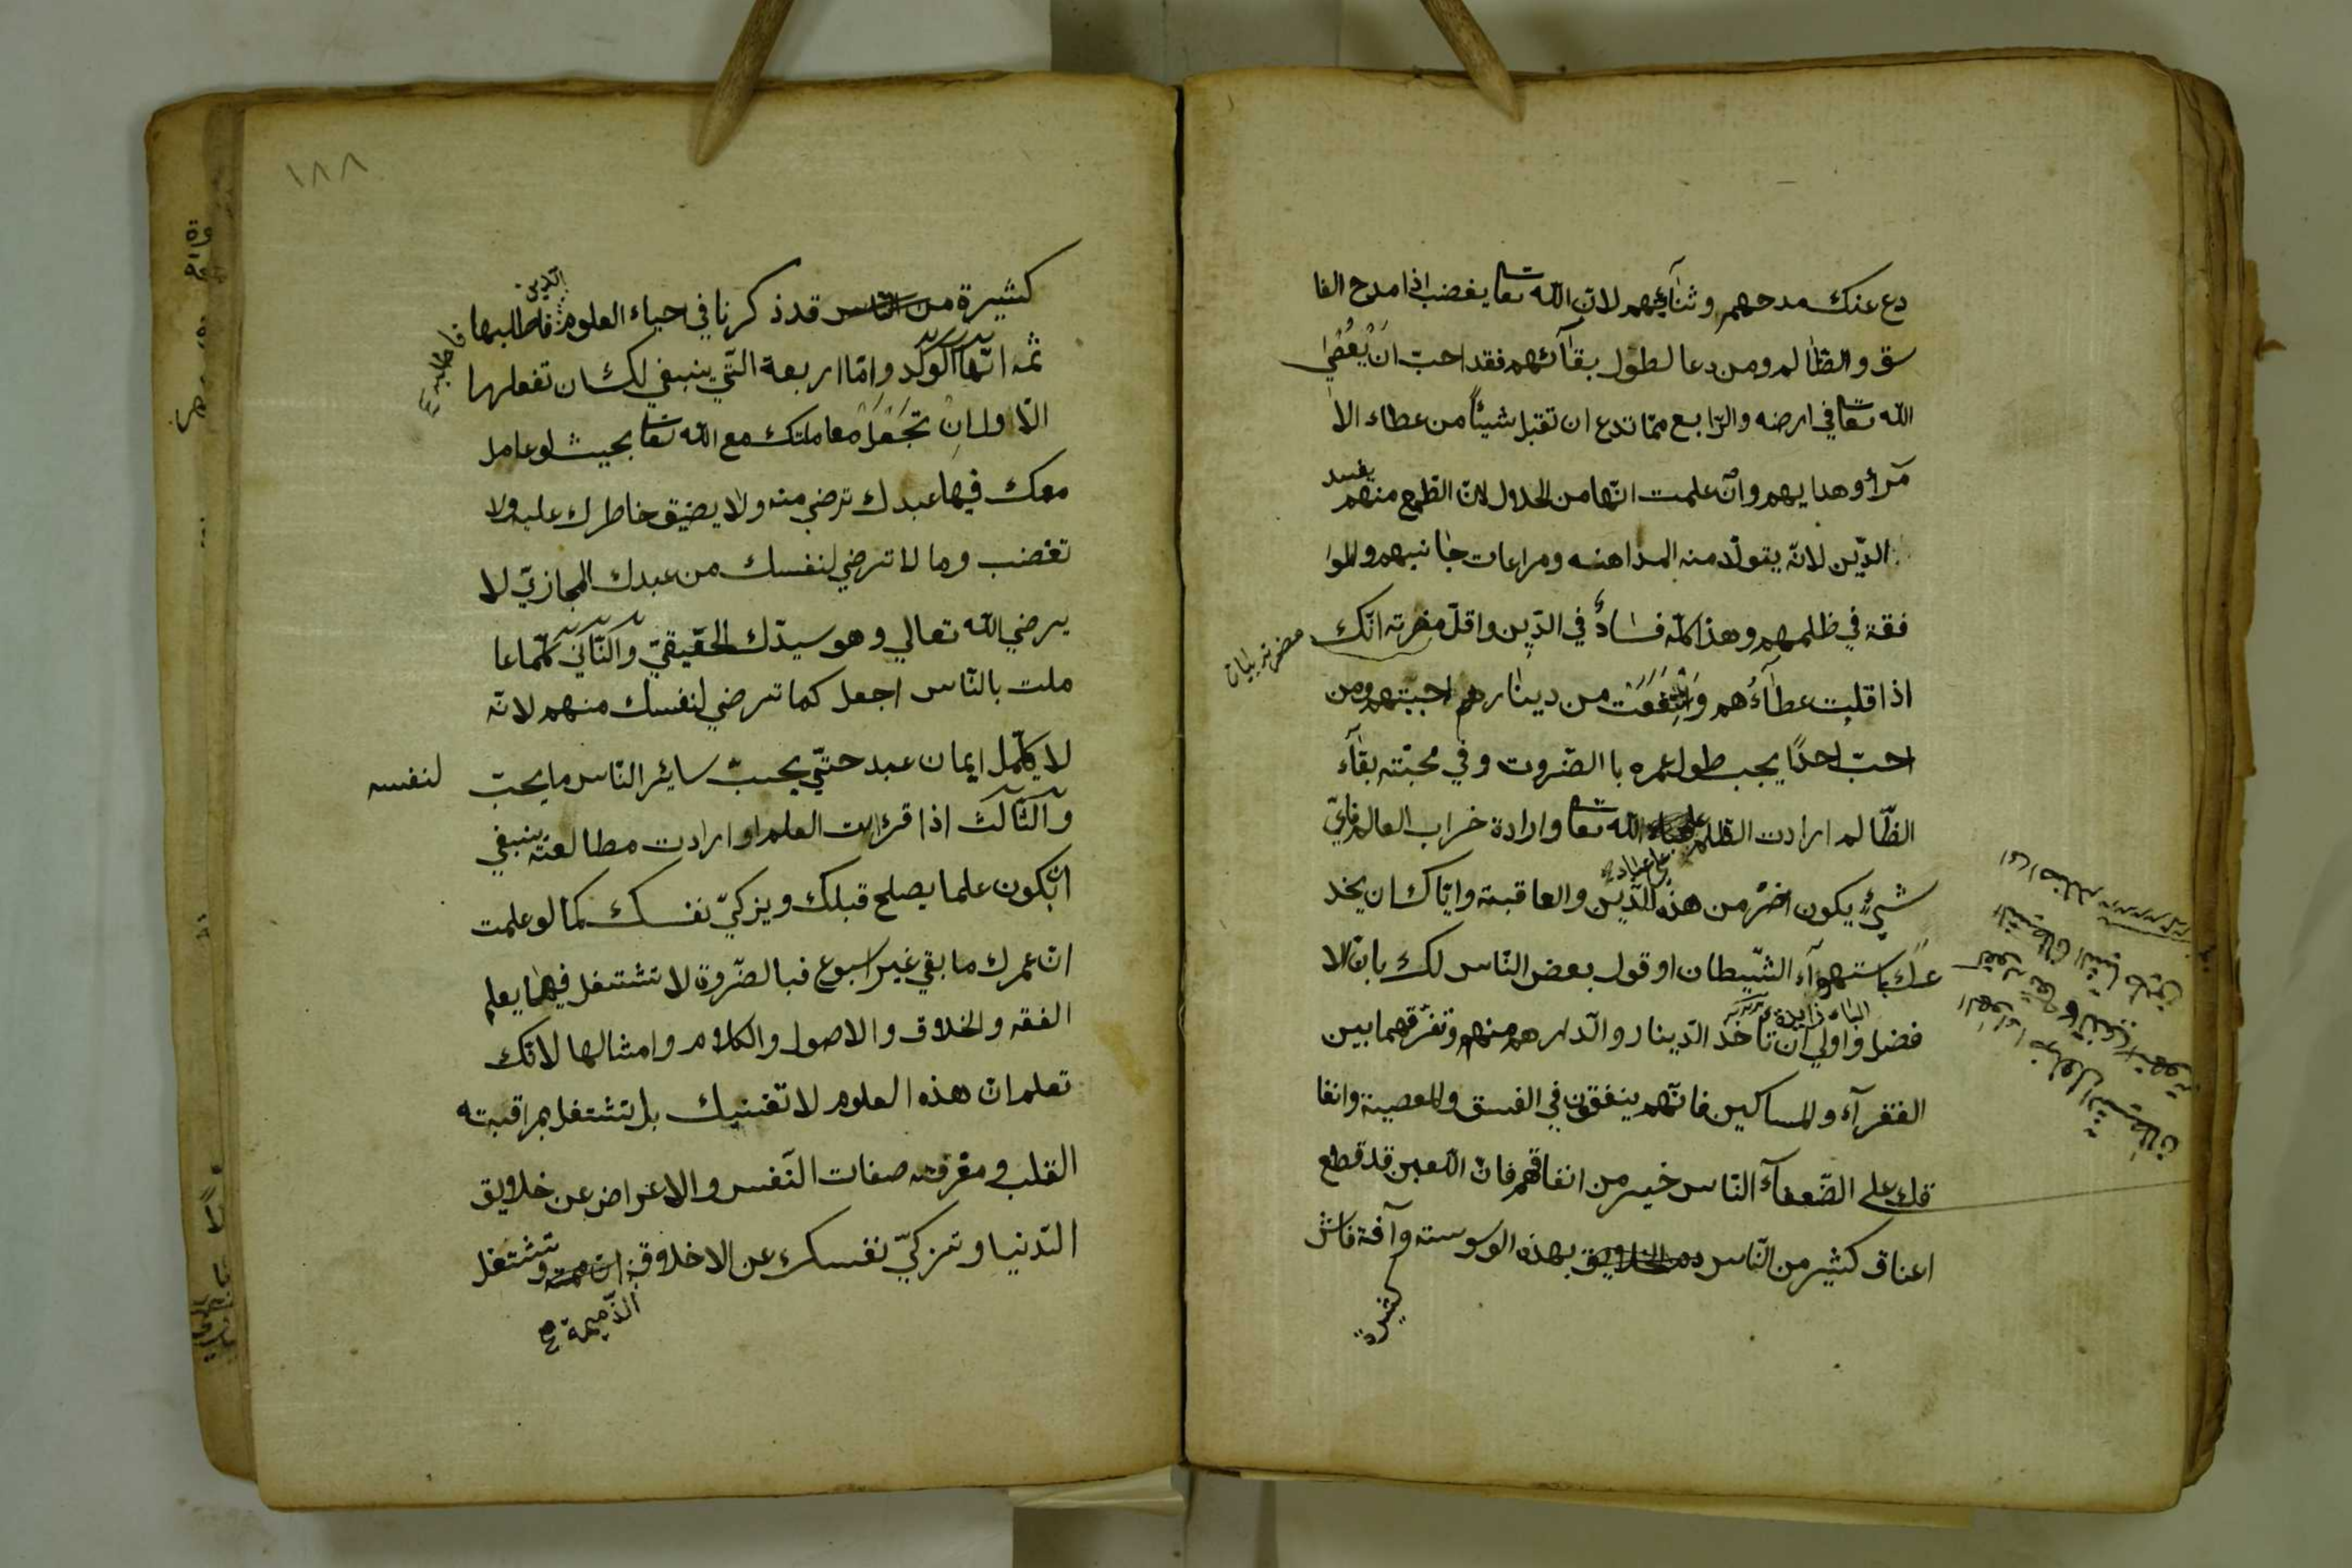 دع عنك مدحهم وثنائهم لان الله تعا يغضب اذا مدح الفا
سق والظالم ومن دعا لطول بقائهم فقد احب ان يعصى
الله تعا في ارضه والرابع مما تدع ان تقبل شيئاً من عطاء الا
مرأ وهدايهم وان علمت انها من الحلال لان الطمع منهم يفسد
الدين لانه يتولد منه المداهنه ومراعات جانبهم والموا
فقة في ظلمهم وهذا كله فسادٌ في الدين واقل مضرته انك
اذا قلبت عطاءهم وانتفعت من دينارهم احببتهم ومن
احب احدًا يحب طول عمره با الضروت وفي محبته بقاء
الظالم ارادت الظلم على الله تعا وارادة خراب العالم فاي
على عباده
شيء يكون اضر من هذه للدين والعاقبة واياك ان يخد
عك باستهواء الشيطان او قول بعض الناس لك بان الا
الباء زايدة
فضل واولى ان تاخذ الدينار والدارهم منهم وتفرقهما بين
الفقرآء والمساكين فانهم ينفقون في الفسق والمعصية وانفا
قك على الضعفآء الناس خير من انفاقهم فان اللعين قد قطع
اعناق كثير من الناس بهذه الوسوسته وآفة فاش
كثيرة
١٨٨
كثيرة من الناس قد ذكرنا في احياء العلوم فاطلبها
الدين
ثمه انها الولد واما اربعة التي ينبغي لك ان تفعلها
الاول ان تجعل معاملتك مع الله تعا بحيث لو عامل
معك فيها عبدك ترضي منه ولا يضيق خاطرك عليه ولا
تغضب وما لا ترضي لنفسك من عبدك المجازي لا
يرضي الله تعالي وهو سيدك الحقيقي والثاني كلما عا
ملت بالناس اجعل كما ترضي لنفسك منهم لانه
لا يكمل ايمان عبد حتي يحب سائر الناس ما يحب لنفسه
والثالث اذا قرات العلم او ارادت مطالعته ينبغي
ان يكون علما يصلح قبلك ويزكي نفسك كما لو علمت
ان عمرك ما بقي غير اسبوع فبالضروة لا تشتغل فيهما يعلم
الفقه والخلاق والاصول والكلام وامثالها لانك
تعلم ان هذه العلوم لا تغنيك بل تشتغل بمراقبته
القلب ومعرفته صفات النفس والاعراض عن خلايق
الدنيا وتزكي نفسك عن الاخلاق وتشتغل
الذميمة صح